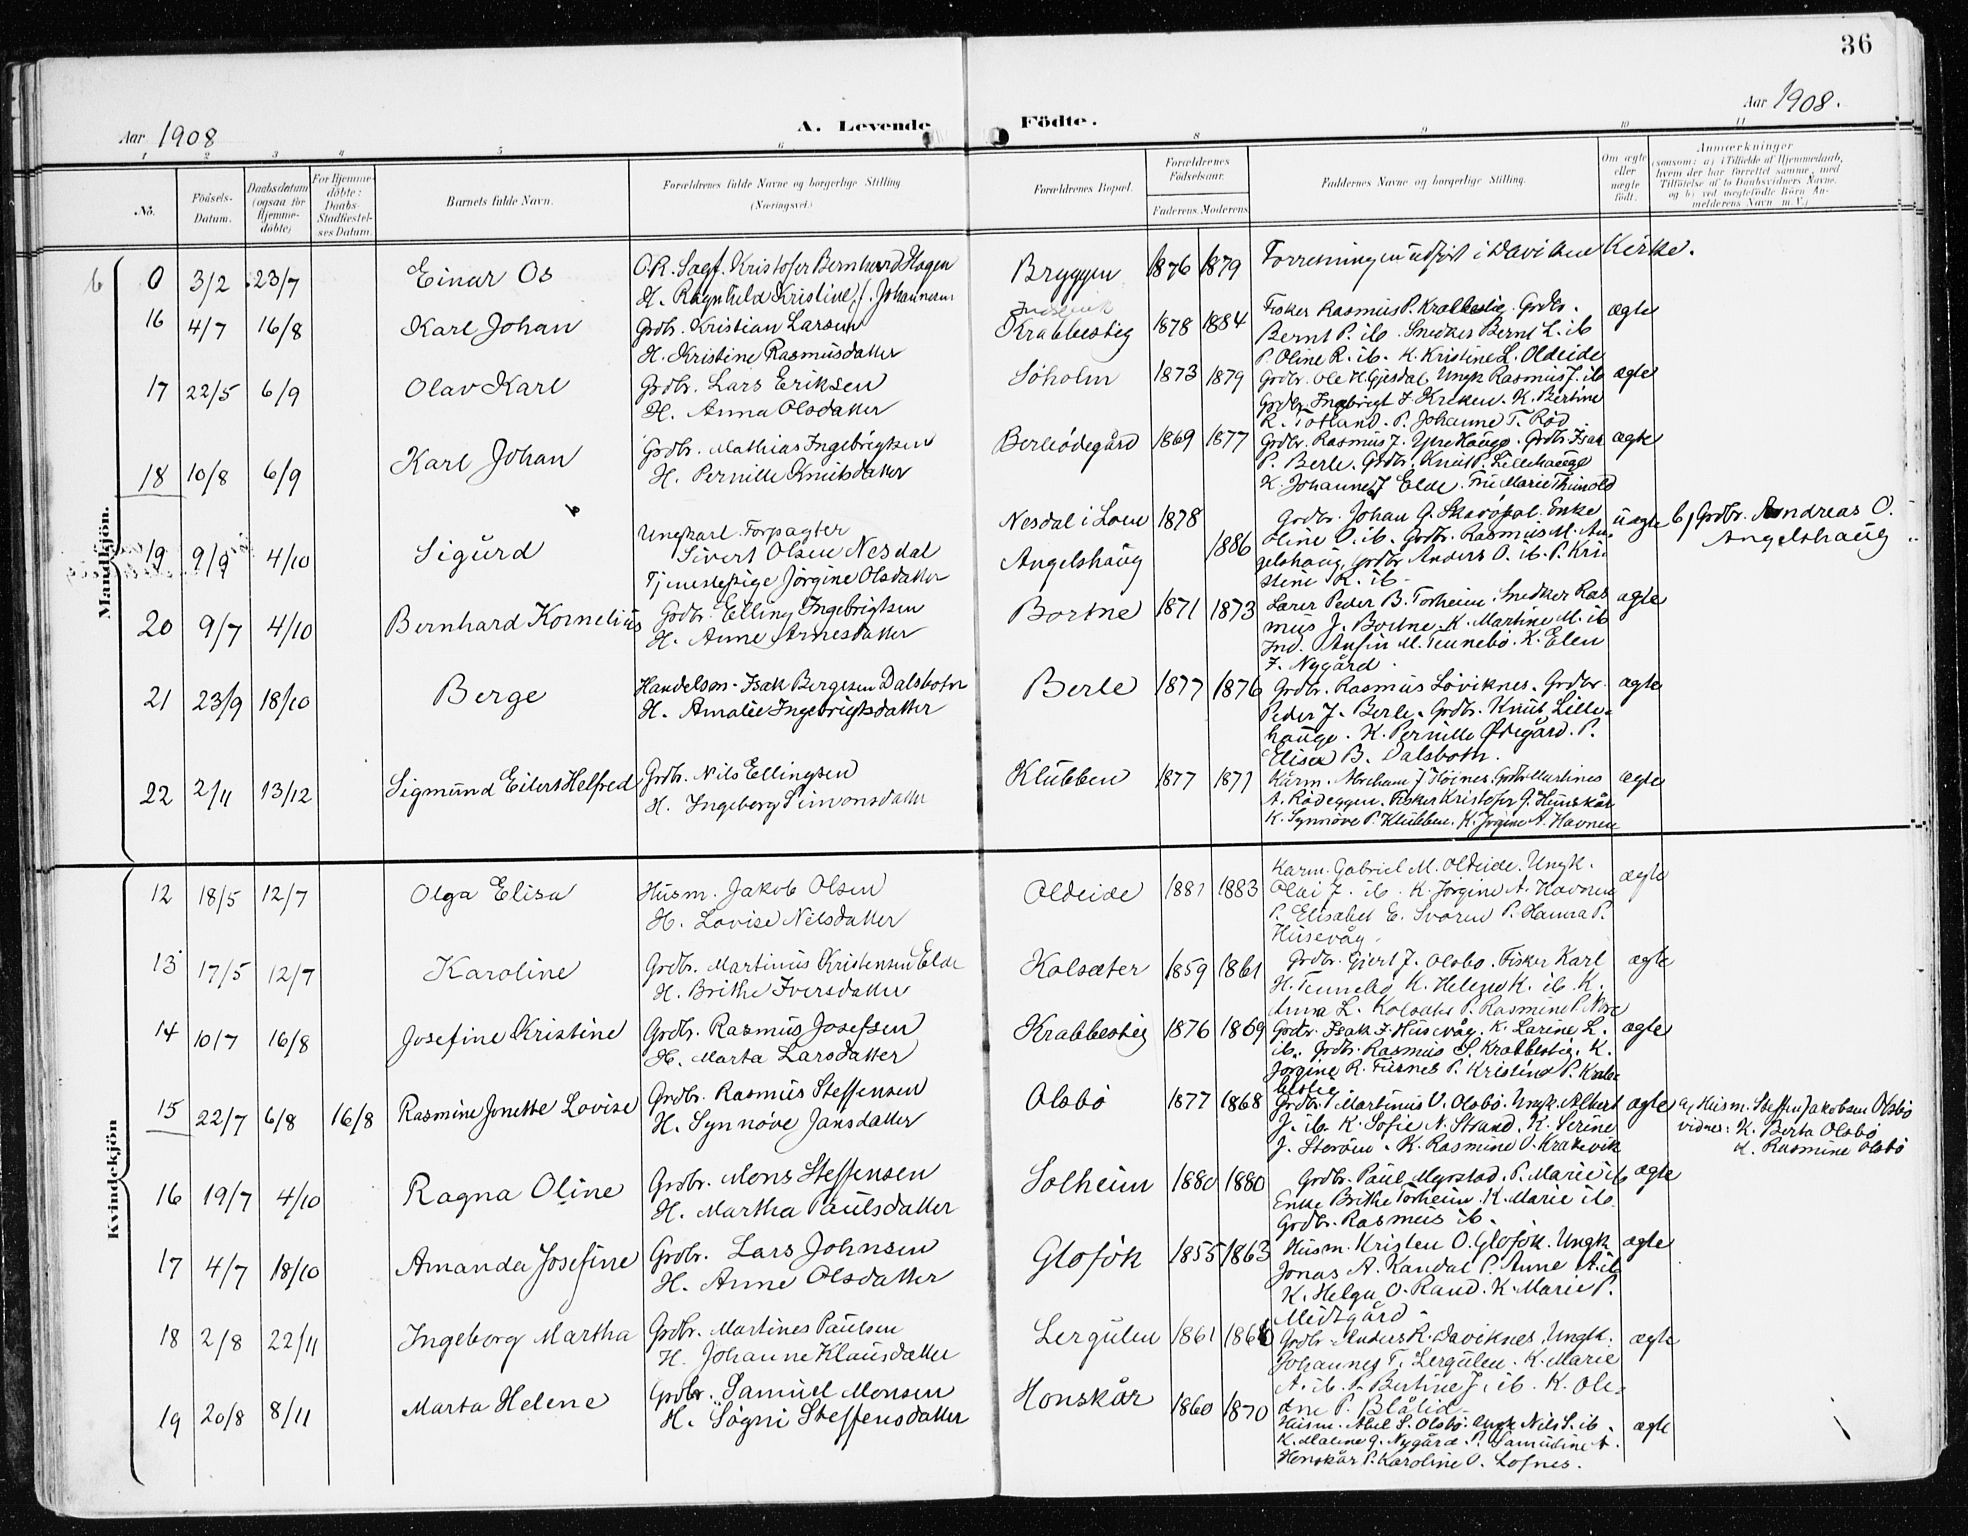 36
Aar 1908
A. Levende
Födte.
Aar 1908.
1 2 3 4 5 6 8 9 10 11
No.
Födsels-
Datum.
Daabsdatum
(ogsaa for
Hjemme-
döbte)
For Hjemme-
döbte:
Daabs-
Stadfæstel-
ses Datum.
Barnets fulde Navn.
Forældrenes fulde Navne og borgerlige Stilling
(Næringsvei.)
Forældrenes Bopæl.
Forældrenes
Födselsaar.
Faderens. Moderens.
Faddernes Navne og borgerlige Stilling.
Om ægte
eller
uægte
født.
Anmærkninger
(saasom: a) i Tilfælde af Hjemmedaab,
hvem der har forrettet samme, med
Tilföielse af to Daabsvidners Navne.
og b) ved uægtefödte Börn An-
melderens Navn m. V.)
Mandkjön.
6 0 3/2 23/7 Einar Os
Kristofer Bernhard Hagen
H. Ragnhild Kristine Johannesen
Bryggen 1876 1879
Forretningen udført i Daviken Kirke.
16 4/7 16/8 Karl Johan
Grdbr. Kristian Larsen
H. Kristine Rasmusdatter
Krabbestig 1878 1884
Fisker Rasmus P. Krabbestig. Grdbr.
Bernt P. ib. Snedker Bernt L. ib
P. Oline R. ib. K. Kristine L. Oldeide
ægte
17 22/5 6/9 Olav Karl
Grdbr. Lars Eriksen
H. Anna Olsdatter
Söholm 1873 1879
Grdbr. Ole H. Gjesdal. Ungk Rasmus J. ib
Grdbr. Ingebrigt J. Kreken. K. Bertine
R. Totland. P. Johanne T. Rød
ægte
18 10/8 6/9 Karl Johan
Grdbr. Mathias Ingebrigtsen
H. Pernille Knutsdatter
Berleödegård 1869 1877
Grdbr. Rasmus J. Ytre Hauge. Grdbr. Isak
P. Berle. Grdbr. Knut P. Lillehauge
K. Johanne J Elde. Fru Marie Thunold
ægte
19 9/9 4/10 Sigurd
Ungkarl Forpagter
Sivert Olsen Nesdal
Tjenestepige Jörgine Olsdatter
Nesdal i Loen 1878
Angelshaug 1886
Grdbr. Johan G. Enke
Oline O. ib. Grdbr. Rasmus M. An-
gelshaug, Grdbr Anders O. ib. P. Kri-
stine K. ib.
uægte
b, Grdbr. Andreas O.
Angelshaug
20 9/7 4/10 Bernhard Kornelius
Grdbr. Elling Ingebrigtsen
H. Anne Arnesdatter
Bortne 1871 1873
Lærer Peder B. Torheim. Snedker Ras
mus J. Bortne. K. Martine M. ib
Ind. Anfin M. Tennebö. K. Elen
J. Nygård.
ægte
21 23/9 18/10 Berge
Handelsm. Isak Bergesen Dalsbotn
H. Amalie Ingebrigtsdatter
Berle 1877 1876
Grdbr. Rasmus Löviknes. Grdbr.
Peder J. Berle. Grdbr. Knut Lille-
hauge. K. Pernille Ødegård. P.
Elisa B. Dalsbotn.
ægte
22 2/11 13/12 Sigmund Eilert Helfred
Grdbr. Nils Ellingsen
H. Ingeborg Simonsdatter
Klubben 1877 1877
Kårm. Abraham J Höines. Grdbr Martines
A. Rödeggen. Fisker Kristofer G. Hunskår
K. Synnöve P. Klubben. K. Jörgine A. Havnen
ægte
Kvindekjön
12 18/5 12/7 Olga Elisa
Husm. Jakob Olsen
H. Lovise Nilsdatter
Oldeide 1881 1883
Karm. Gabriel M. Oldeide. Ungk.
Olai J. ib. K. Jörgine A. Havnen
P. Elisabet E. Svoren P. Hanna P.
Husevåg.
ægte
13 17/5 12/7 Karoline
Grdbr. Martinus Kristensen Elde
H. Brithe Iversdatter
Kolsæter 1859 1861
Grdbr. Gjert J. Olsbö. Fisker Karl
H. Tennebö K. Helene K. ib K.
Anna L. Kolsæter P. Rasmine P. Nore
ægte
14 10/7 16/8 Josefine Kristine
Grdbr. Rasmus Josefsen
H. Marta Larsdatter
Krabbestig 1876 1869
Grdbr. Isak J. Husevåg. K. Larine L.
ib. Grdbr. Rasmus S. Krabbestig. K.
Jörgine R. Fusnes P. Kristine P. Krab-
bestig
ægte
15 22/7 6/8 16/8 Rasmine Jonette Lovise
Grdbr. Rasmus Steffensen
H. Synnöve Jansdatter
Olsbö 1877 1868
Grdbr. Martinus V. Olsbö. Ungk. Albert
J. ib K. Sofie N. Strand. K. Perine
J. Storöen. K. Rasmine O. Krakevik
ægte
a, Husm. Steffen Jakobsen Olsbö
vidner: K. Berta Olsbö
K. Rasmine Olsbö
16 19/7 4/10 Ragna Oline
Grdbr. Mons Steffensen
H. Martha Paulsdatter
Solheim 1880 1880
Grdbr. Paul Myrstad. P. Marie ib
Enke Brithe Torheim. K. Marie ib.
Grdbr. Rasmus ib.
ægte
17 4/7 18/10 Amanda Josefine
Grdbr. Lars Johnsen
H. Anne Olsdatter
Glofök 1855 1863
Husm. Kristen O. Glofök. Ungk
Jonas A. Kandal P. Anne A. ib
K. Helga O. Rand. K. Marie P.
Midtgård.
ægte
18 2/8 22/11 Ingeborg Martha
Grdbr. Martines Paulsen
H. Johanne Klausdatter
Lergulen 1861
Grdbr. Anders R. Daviknes. Ungk.
Johannes T. Lergulen. K. Marie
A. ib. P. Bertine J. ib. K. Ole-
ane P. Blålid
ægte
19 20/8 8/11 Marta Helene
Grdbr. Samuel Monsen
H. Sögni Steffensdatter
Honskår 1860 1870
Husm. Abel S. Olsbö. Ungk Nils S. ib.
K. Maline G. Nygård. P. Samuline A.
Honskår P. Karoline O. Lofnes.
ægte